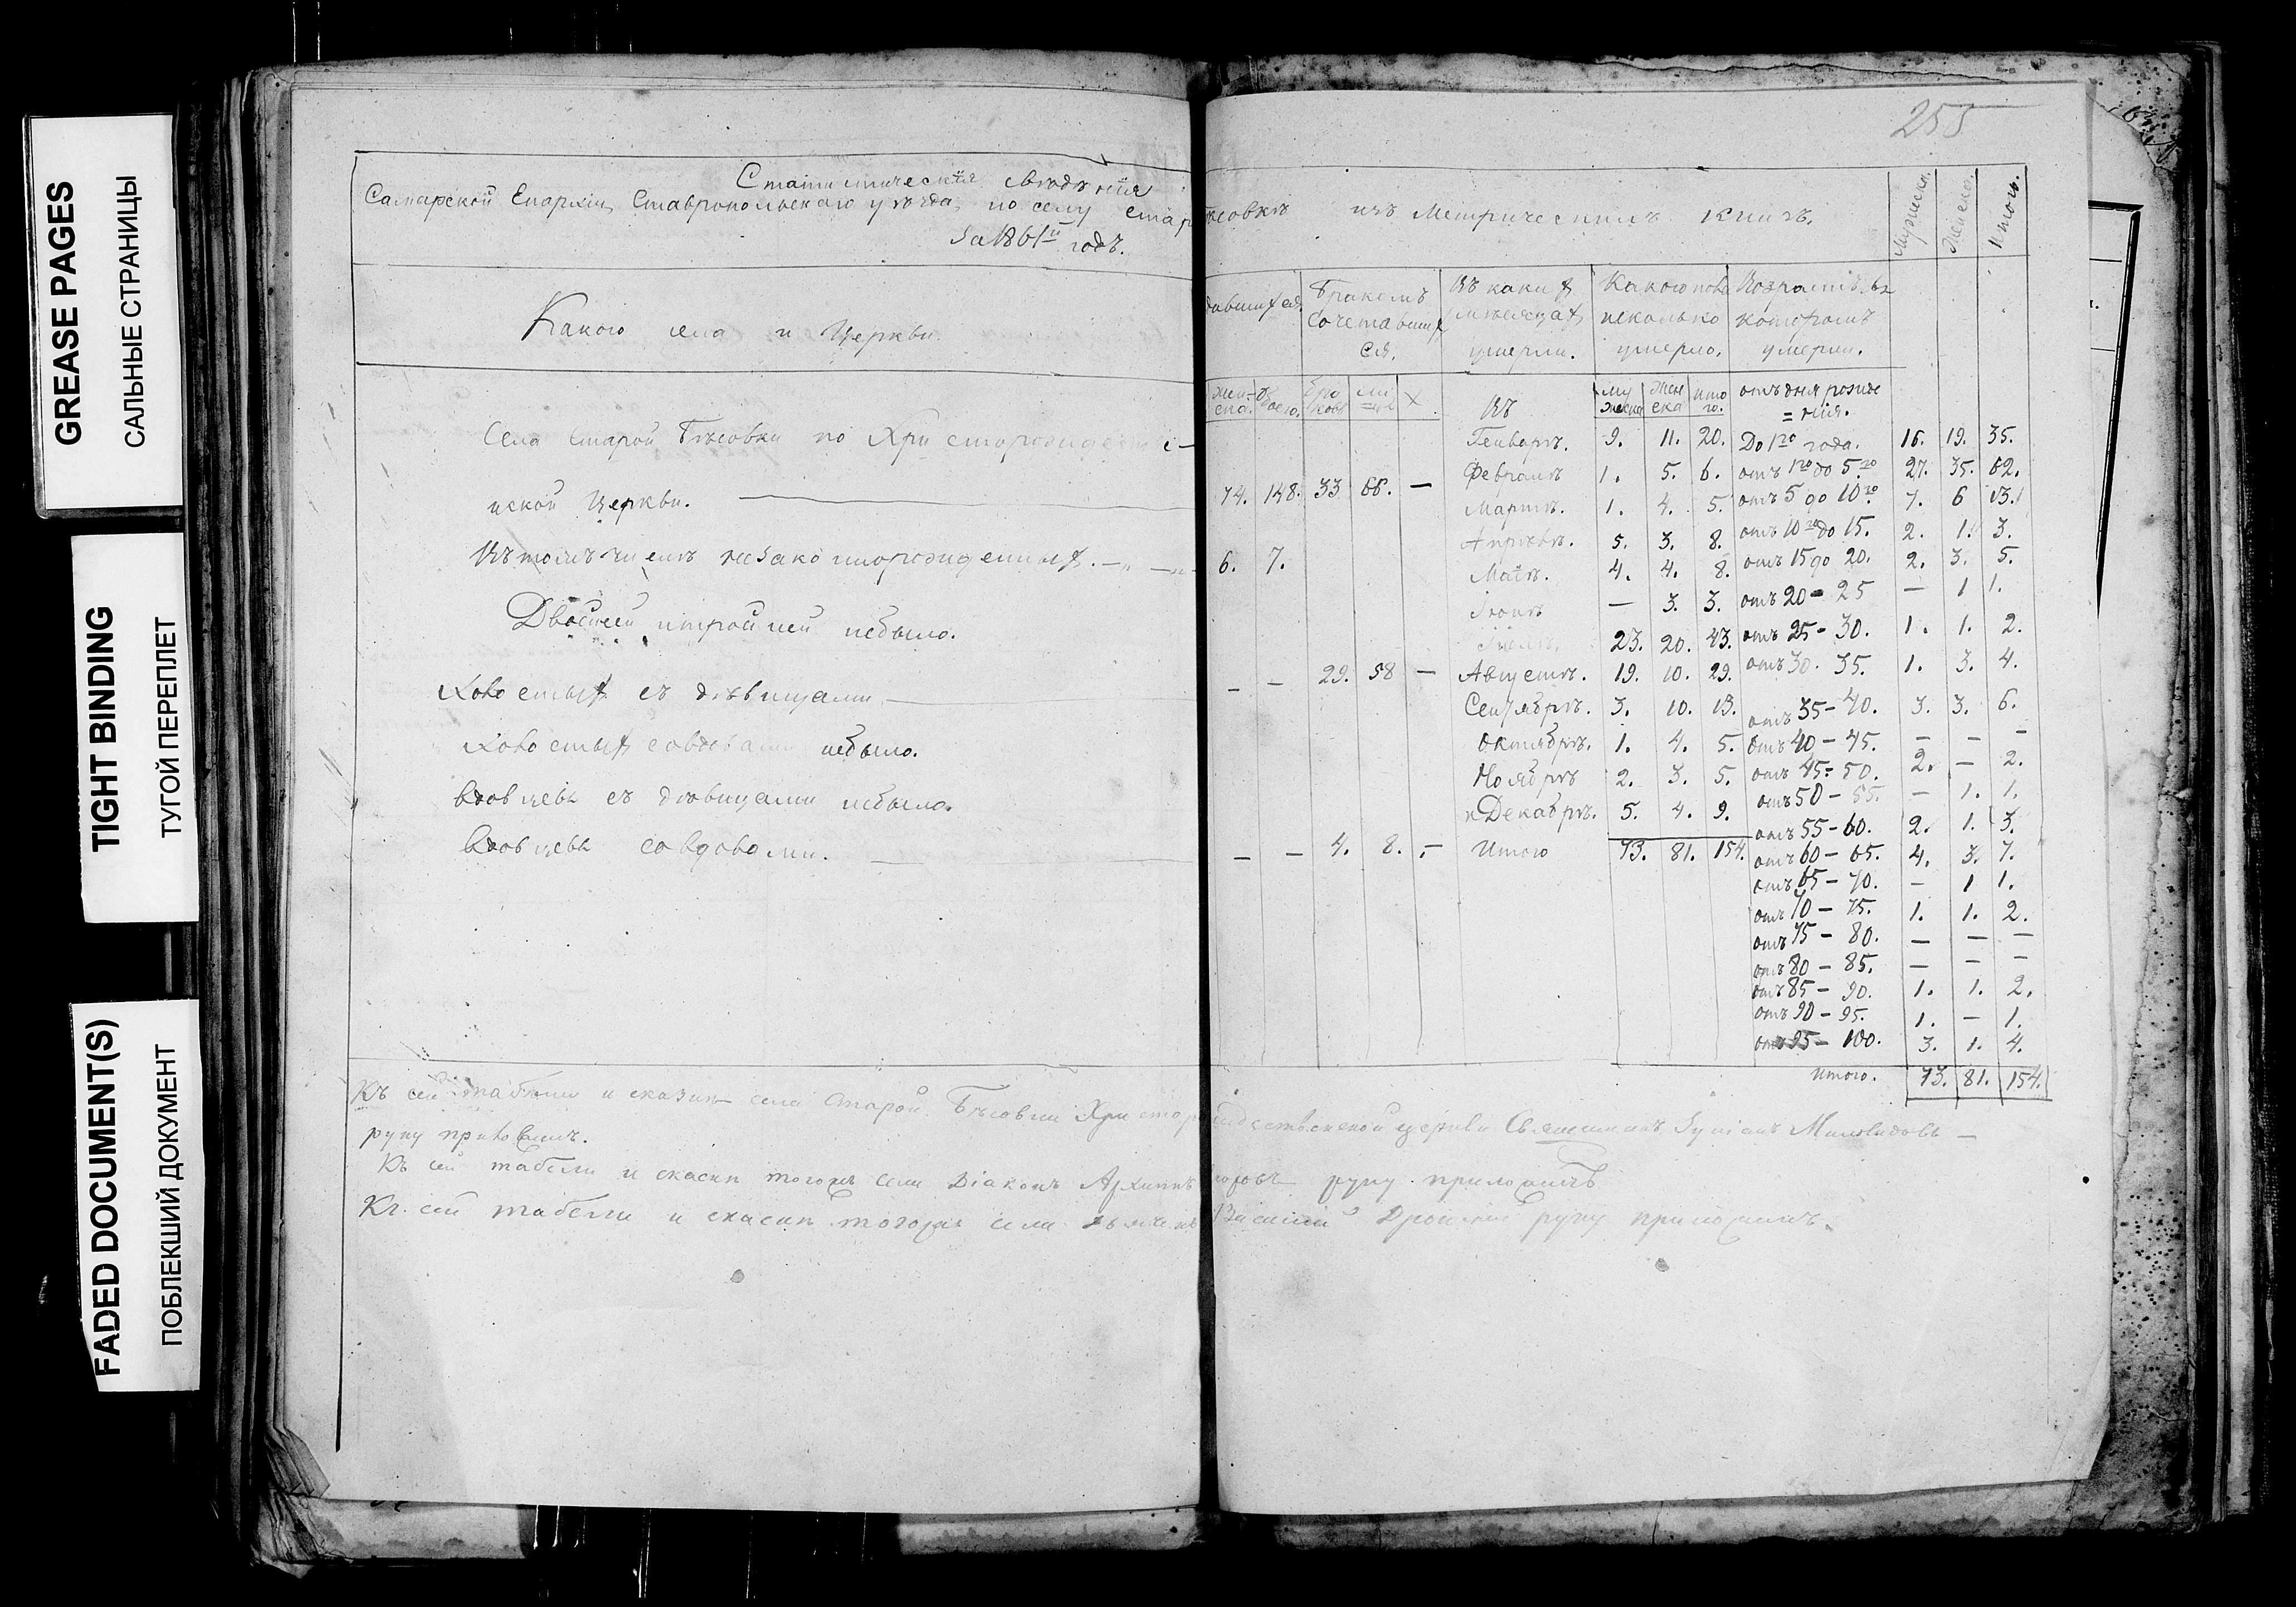 GREASE PAGES
САЛЬНЫЕ СТРАНИЦЫ
TIGHT BINDING
ТУГОЙ ПЕРЕПЛЕТ
FADED DOCUMENT(S)
ПОБЛЕКШИЙ ДОКУМЕНТ
Статистическія свѣдѣнія
Самарской Епархіи, Ставропольскаго уѣзда, по селу Стар
За 1861й годъ.
Какого села и Церкви.
Села Старой Бѣсовки по Христорождестве-
нской Церкви.
Въ томъ числѣ незаконнорожденныхъ.
Двойней и тройней небыло.
Холостыхъ съ дѣвицами
Холостыхъ со вдовами небыло.
Вдовцевъ съ дѣвицами небыло.
Вдовцевъ со вдовами.
255
Бѣсовкѣ изъ Метрическихъ Книгъ.
Мужеска. Женска. Итого.
давшихся. Бракомъ сочетавшихся. Въ какихъ мѣсяцахъ умерли. Возрастъ въ которомъ умерли.
женска. обоего. браковъ X Въ мужеска женска итого. отъ дня рожде=нія.
Генварѣ 9. 11. 20. До 1го года. 16. 19. 35.
Февралѣ 1. 5. 6. отъ 1го до 5го 27. 35. 62.
74. 148. 33 66. — Мартѣ. 1. 4. 5. отъ 5 до 10го 7. 6 13.
Апрѣлѣ. 5. 3. 8. отъ 10го до 15. 2. 1. 3.
6. 7. Маіѣ. 4. 4. 8. отъ 15 до 20. 2. 3. 5.
Іюнѣ — 3. 3. отъ 20 - 25 — 1 1.
Іюлѣ. 23. 20. 43. отъ 25 - 30. 1. 1. 2.
— — 29. 58 — Августѣ. 19. 10. 29. отъ 30. 35. 1. 3. 4.
Сентябрѣ. 3. 10. 13. отъ 35 - 40. 3. 3. 6.
Октябрѣ. 1. 4. 5. отъ 40 - 45. — — —
Ноябрѣ 2. 3. 5. отъ 45 - 50. 2. — 2.
и Декабрѣ. 5. 4. 9. отъ 50 - 55. — 1. 1.
отъ 55 - 60. 2. 1. 3.
— — 4. 8. — Итого 73. 81. 154. отъ 60 - 65. 4. 3. 7.
отъ 65 - 70. — 1 1.
отъ 70 - 75. 1. 1. 2.
отъ 75 - 80. — — —
отъ 80 - 85. — — —
отъ 85 - 90. 1. 1. 2.
отъ 90 - 95. 1. — 1.
отъ 95 - 100. 3. 1. 4.
итого. 73. 81. 154.
Къ сей табели и сказки села Старой Бѣсовки Христорождественской церкви Священникъ Миловидовъ
руку приложилъ.
Къ сей табели и сказки тогожъ села Діаконъ руку приложилъ
Къ сей табели и сказки тогожъ села Василій руку приложилъ.